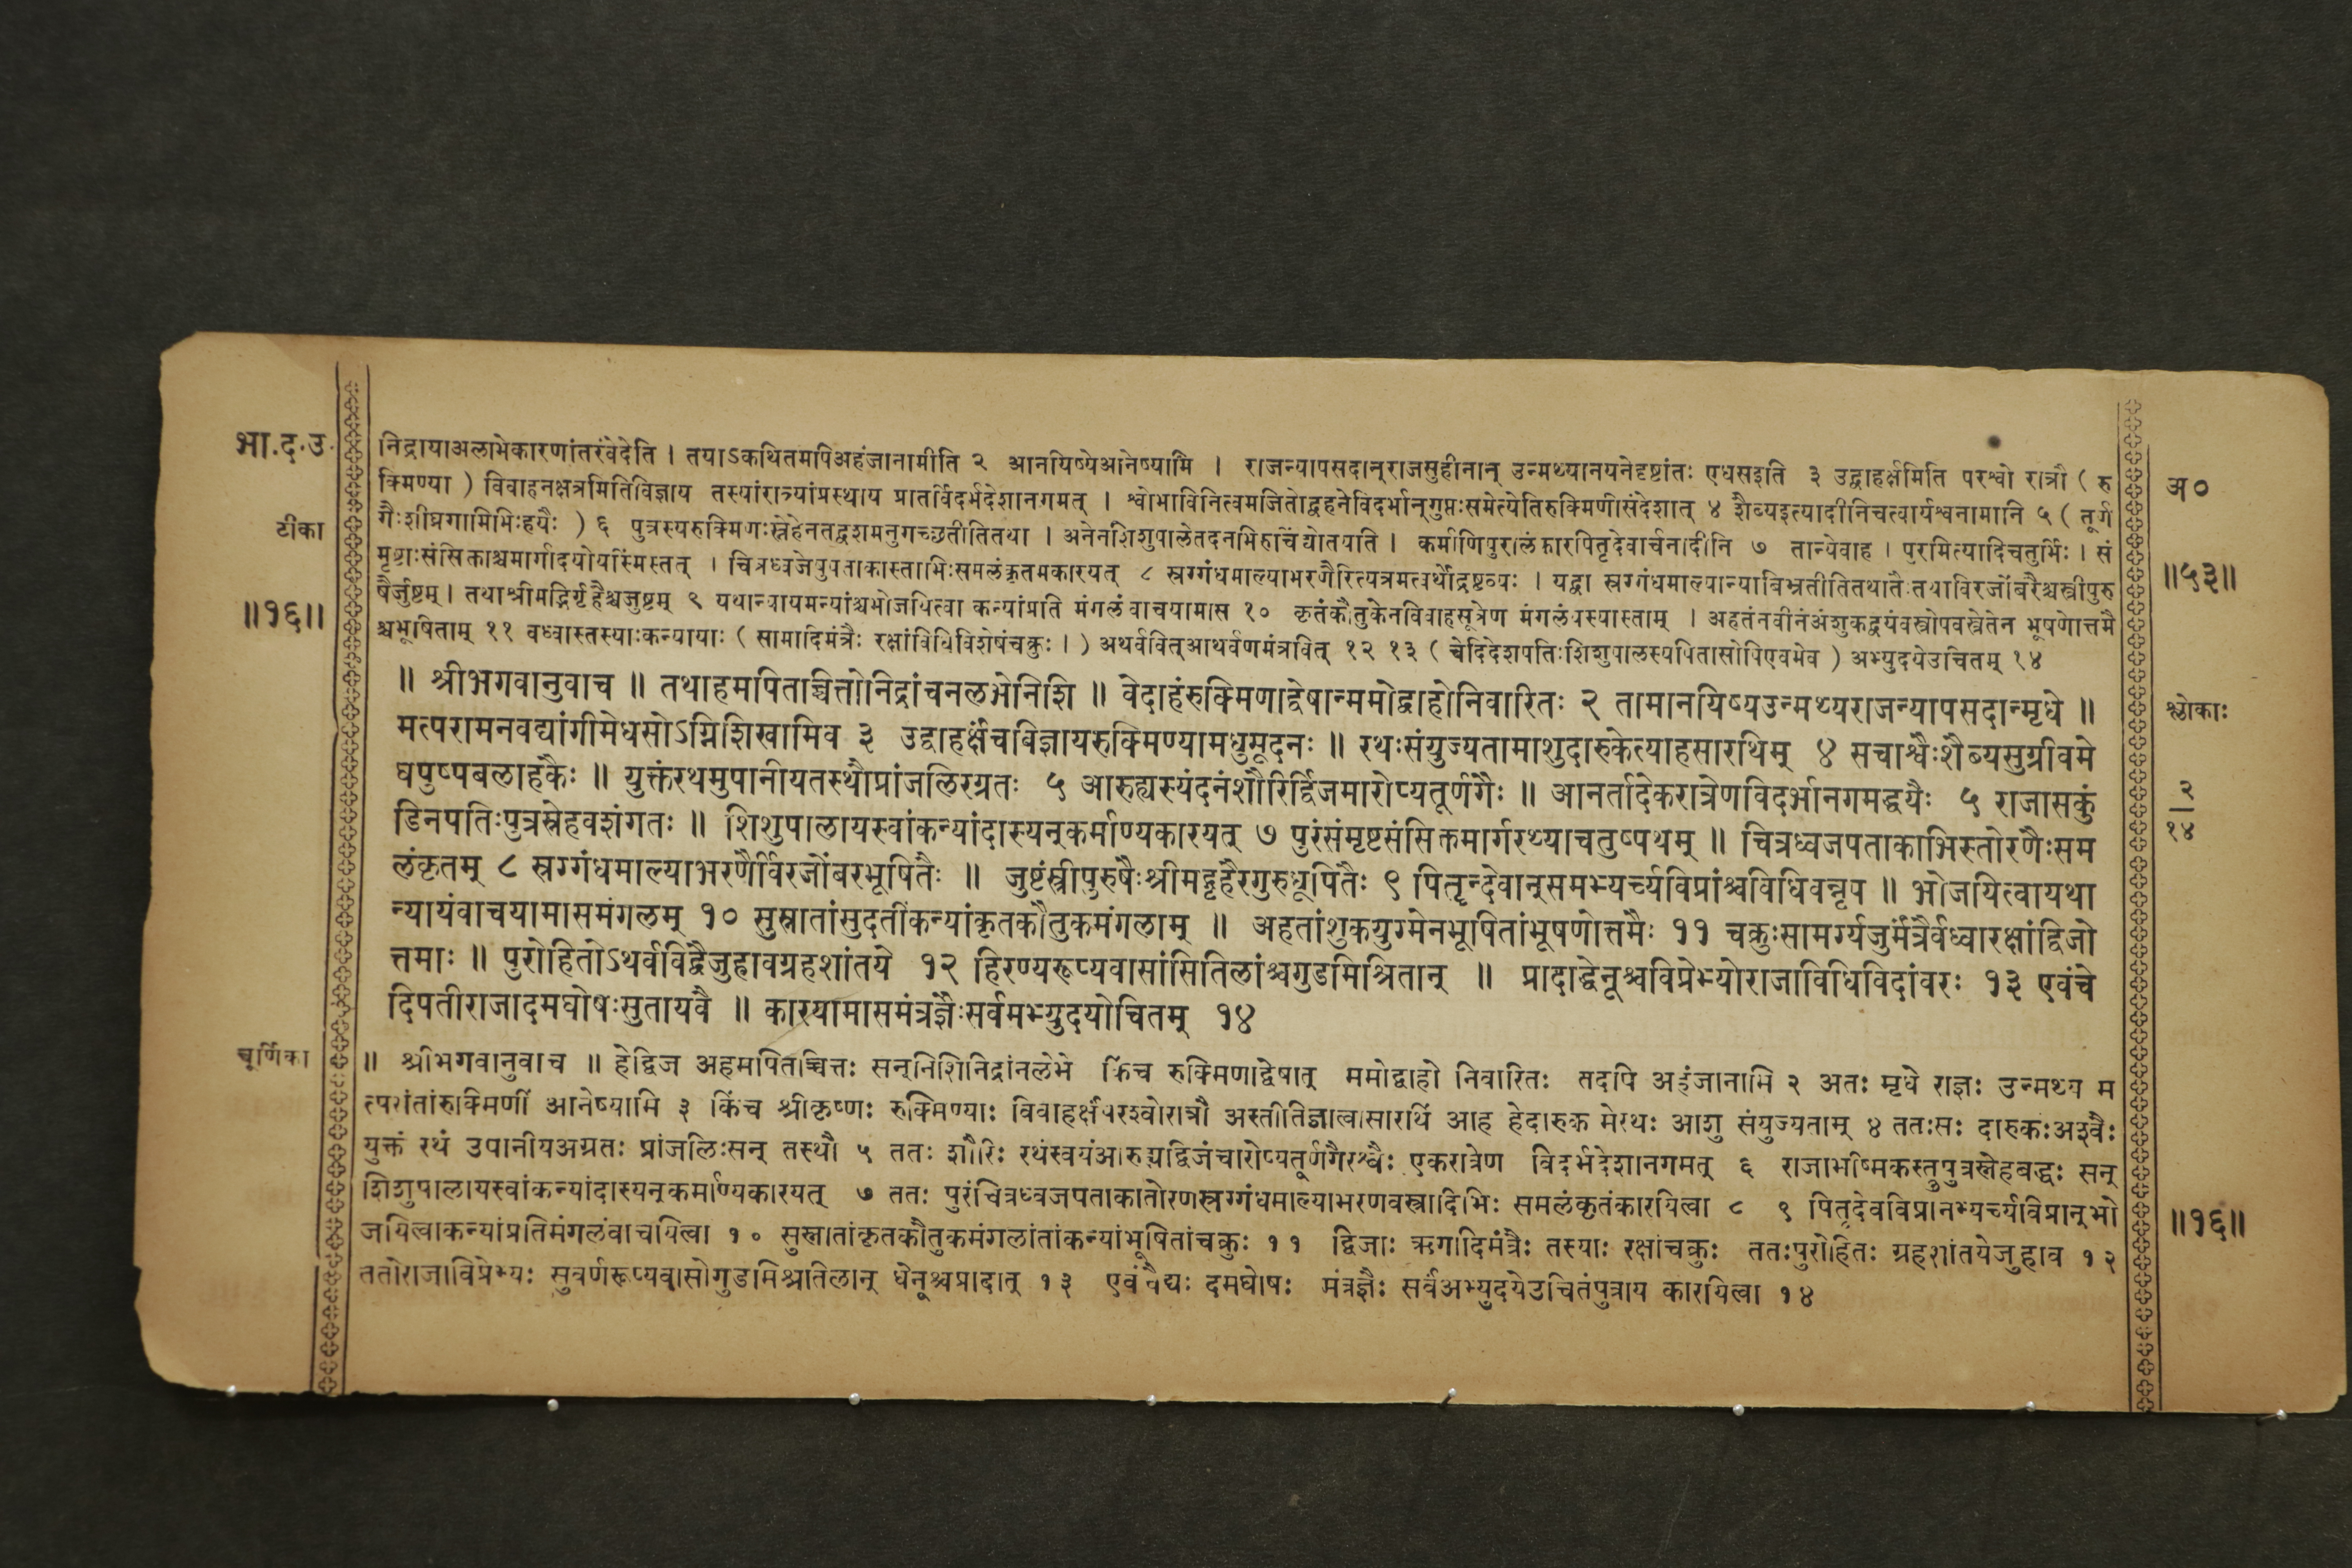 भा.द.उ.
टीका
॥१६॥
निद्रायाअलाभेकारणांतरंवेदेति । तयाऽकथितमपिअहंजानामीति २ आनयिष्येआनेष्यामि । राजन्यापसदान्राजसुहीनान् उन्मथ्यानयनेदृष्टांतः एधसइति ३ उद्वाहर्क्षमिति परश्वो रात्रौ ( रु
क्मिण्या ) विवाहनक्षत्रमितिविज्ञाय तस्यांरात्र्यांप्रस्थाय प्रातर्विदर्भदेशानगमत् । श्वोभाविनित्वमजितोद्वहनेविदर्भान्गुप्तःसमेत्येतिरुक्मिणीसंदेशात् ४ शैब्यइत्यादीनिचत्वार्यश्वनामानि ५ ( तूर्ण
गैःशीघ्रगामिभिःहयैः ) ६ पुत्रस्यरुक्मिणःस्नेहेनतद्वशमनुगच्छतीतितथा । अनेनशिशुपालेतदनभिरुचिंद्योतयति । कर्माणिपुरालंकारपितृदेवार्चनादीनि ७ तान्येवाह । पुरमित्यादिचतुर्भिः । सं
मृष्टाःसंसिक्ताश्चमार्गादयोयस्मिंस्तत् । चित्रध्वजेषुपताकास्ताभिःसमलंकृतमकारयत् ८ स्रग्गंधमाल्याभरणैरित्यत्रमत्वर्थोद्रष्टव्यः । यद्वा स्रग्गंधमाल्यान्याबिभ्रतीतितथातैःतथाविरजोंबरैश्चस्त्रीपुरु
षैर्जुष्टम् । तथाश्रीमद्भिर्गृहैश्चजुष्टम् ९ यथान्यायमन्यांश्चभोजयित्वा कन्यांप्रति मंगलंवाचयामास १० कृतंकौतुकेनविवाहसूत्रेण मंगलंयस्यास्ताम् । अहतंनवीनंअंशुकद्वयंवस्त्रोपवस्त्रेतेन भूषणोत्तमै
श्चभूषिताम् ११ वध्वास्तस्याःकन्यायाः ( सामादिमंत्रैः रक्षांविधिविशेषंचक्रुः । ) अथर्ववित्आथर्वणमंत्रवित् १२ १३ ( चेदिदेशपतिःशिशुपालस्यपितासोपिएवमेव ) अभ्युदयेउचितम् १४
॥ श्रीभगवानुवाच ॥ तथाहमपितच्चित्तोनिद्रांचनलभेनिशि ॥ वेदाहंरुक्मिणाद्वेषान्ममोद्वाहोनिवारितः २ तामानयिष्यउन्मथ्यराजन्यापसदान्मृधे ॥
मत्परामनवद्यांगीमेधसोऽग्निशिखामिव ३ उद्वाहर्क्षंचविज्ञायरुक्मिण्यामधुसूदनः ॥ रथःसंयुज्यतामाशुदारुकेत्याहसारथिम् ४ सचाश्वैःशैब्यसुग्रीवमे
घपुष्पबलाहकैः ॥ युक्तंरथमुपानीयतस्थौप्रांजलिरग्रतः ५ आरुह्यस्यंदनंशौरिर्द्विजमारोप्यतूर्णगैः ॥ आनर्तादेकरात्रेणविदर्भानगमद्धयैः ५ राजासकुं
डिनपतिःपुत्रस्नेहवशंगतः ॥ शिशुपालायस्वांकन्यांदास्यन्कर्माण्यकारयत् ७ पुरंसंमृष्टसंसिक्तमार्गरथ्याचतुष्पथम् ॥ चित्रध्वजपताकाभिस्तोरणैःसम
लंकृतम् ८ स्रग्गंधमाल्याभरणैर्विरजोंबरभूषितैः ॥ जुष्टंस्त्रीपुरुषैःश्रीमद्गृहैरगुरुधूपितैः ९ पितॄन्देवान्समभ्यर्च्यविप्रांश्चविधिवन्नृप ॥ भोजयित्वायथा
न्यायंवाचयामासमंगलम् १० सुस्नातांसुदतींकन्यांकृतकौतुकमंगलाम् ॥ अहतांशुकयुग्मेनभूषितांभूषणोत्तमैः ११ चक्रुःसामर्ग्यजुर्मंत्रैर्वध्वारक्षांद्विजो
त्तमाः ॥ पुरोहितोऽथर्वविद्वैजुहावग्रहशांतये १२ हिरण्यरूप्यवासांसितिलांश्चगुडमिश्रितान् ॥ प्रादाद्धेनूश्चविप्रेभ्योराजाविधिविदांवरः १३ एवंचे
दिपतीराजादमघोषःसुतायवै ॥ कारयामासमंत्रज्ञैःसर्वमभ्युदयोचितम् १४
चूर्णिका
॥ श्रीभगवानुवाच ॥ हेद्विज अहमपितच्चित्तः सन्निशिनिद्रांनलेभे किंच रुक्मिणाद्वेषात् ममोद्वाहो निवारितः तदपि अहंजानामि २ अतः मृधे राज्ञः उन्मथ्य म
त्परांतांरुक्मिणीं आनेष्यामि ३ किंच श्रीकृष्णः रुक्मिण्याः विवाहर्क्षंपरश्वोरात्रौ अस्तीतिज्ञात्वासारथिं आह हेदारुक मेरथः आशु संयुज्यताम् ४ ततःसः दारुकःअश्वैः
युक्तं रथं उपानीयअग्रतः प्रांजलिःसन् तस्थौ ५ ततः शौरिः रथंस्वयंआरुह्यद्विजंचारोप्यतूर्णगैरश्वैः एकरात्रेण विदर्भदेशानगमत् ६ राजाभीष्मकस्तुपुत्रस्नेहबद्धः सन्
शिशुपालायस्वांकन्यांदास्यन्कर्माण्यकारयत् ७ ततः पुरंचित्रध्वजपताकातोरणस्रग्गंधमाल्याभरणवस्त्रादिभिः समलंकृतंकारयित्वा ८ ९ पितृदेवविप्रानभ्यर्च्यविप्रान्भो
जयित्वाकन्यांप्रतिमंगलंवाचयित्वा १० सुस्नातांकृतकौतुकमंगलांतांकन्यांभूषितांचक्रुः ११ द्विजाः ऋगादिमंत्रैः तस्याः रक्षांचक्रुः ततःपुरोहितः ग्रहशांतयेजुहाव १२
ततोराजाविप्रेभ्यः सुवर्णरूप्यवासोगुडमिश्रतिलान् धेनूश्चप्रादात् १३ एवंचैद्यः दमघोषः मंत्रज्ञैः सर्वंअभ्युदयेउचितंपुत्राय कारयित्वा १४
अ०
॥५३॥
श्लोकाः
२
१४
॥१६॥